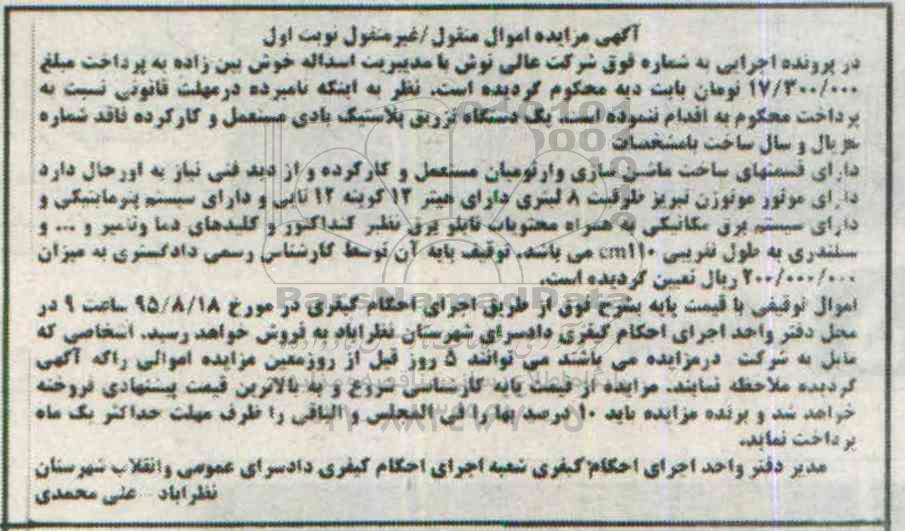 آگهی مزایده اموال منقول /غیرمنقول نوبت اول
در پرونده اجرایی به شماره فوق شرکت عالی نوش با مدیریت اسداله خوش بین زاده به پرداخت مبلغ
۱۷/۳۰۰/۰۰۰ تومان بابت دیه محکوم گردیده است. نظر به اینکه نامبرده درمهلت قانونی نسبت به
پرداخت محکوم به اقدام ننموده است. یک دستگاه تزریق پلاستیک بادی مستعمل و کارکرده فاقد شماره
سریال و سال ساخت بامشخصات
دارای قسمتهای ساخت ماشین سازی وارتومیان مستعمل و کارکرده و از دید فنی نیاز به اورحال دارد
دارای موتور موتوژن تبریز ظرفیت ۸ لیتری دارای هیتر ۱۳ کوپنه ۱۲ تایی و دارای سیستم پنوماتیکی و
دارای سیستم برق مکانیکی به همراه محتویات تابلو برق نظیر کنداکتور و کلیدهای دما وتایمر و ... و
سیلندری به طول تقریبی cm۱۱۰ می باشد. توقیف پایه آن توسط کارشناس رسمی دادگستری به میزان
۲۰۰/۰۰۰/۰۰۰ ریال تعیین گردیده است.
اموال توقیفی با قیمت پایه بشرح فوق از طریق اجرای احکام کیفری در مورخ ۹۵/۸/۱۸ ساعت ۹ در
محل دفتر واحد اجرای احکام کیفری دادسرای شهرستان نظراباد به فروش خواهد رسید. اشخاصی که
مایل به شرکت درمزایده می باشند می توانند ۵ روز قبل از روزمعین مزایده اموالی راکه آگهی
گردیده ملاحظه نمایند. مزایده از قیمت پایه کارشناسی شروع و به بالاترین قیمت پیشنهادی فروخته
خواهد شد و برنده مزایده باید ۱۰ درصد بها را فی المجلس و الباقی را ظرف مهلت حداکثر یک ماه
پرداخت نماید.
مدیر دفتر واحد اجرای احکام کیفری شعبه اجرای احکام کیفری دادسرای عمومی وانقلاب شهرستان
نظراباد - علی محمدی
ParsNamadData